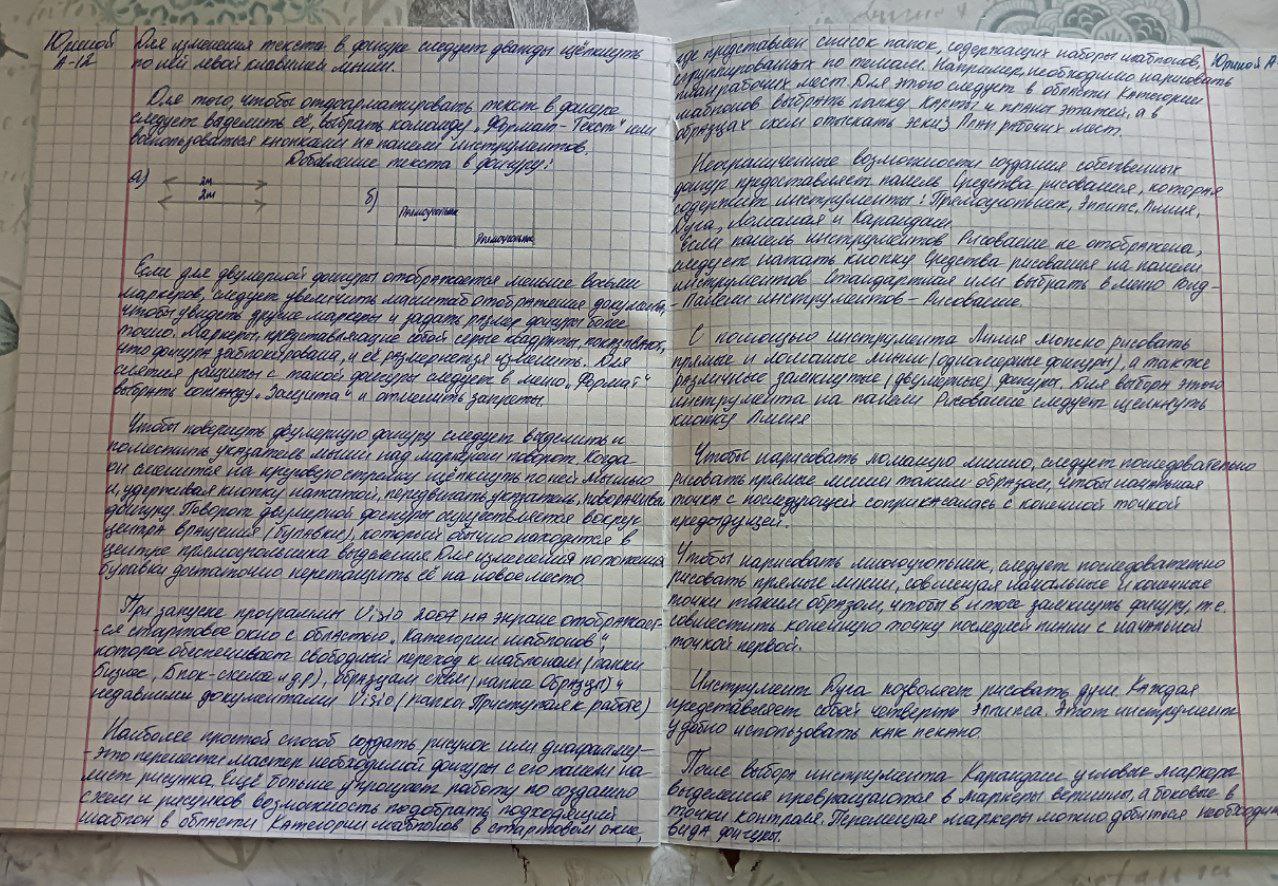 Юриной
А-12
Для изменения текста в фигуре следует дважды щёлкнуть
по ней левой клавишей мыши.
Для того, чтобы отформатировать текст в фигуре
следует выделить её, выбрать команду „Формат - Текст" или
воспользоваться кнопками на панели инструментов.
Добавление текста в фигуру:
а)
2м
2м
б)
Прямоугольник
Прямоугольник
Если для двумерной фигуры отображается меньше восьми
маркеров, следует увеличить масштаб отображения документа,
чтобы увидеть другие маркеры и задать размер фигуры более
точно. Маркеры, представляющие собой серые квадраты, показывают,
что фигура заблокирована, и её размер нельзя изменить. Для
снятия защиты с такой фигуры следует в меню „Формат"
выбрать команду „Защита" и отменить запреты.
Чтобы повернуть двумерную фигуру следует выделить и
поместить указатель мыши над маркером поворот. Когда
он сменится на круговую стрелку щёлкнуть по ней мышью
и, удерживая кнопку нажатой, передвигать указатель, поворачивая
фигуру. Поворот двумерной фигуры осуществляется вокруг
центра вращения (булавки), который обычно находится в
центре прямоугольника выделения. Для изменения положения
булавки достаточно перетащить её на новое место
При запуске программы Visio 2007 на экране отображает-
-ся стартовое окно с областью „Категории шаблонов",
которое обеспечивает свободный переход к шаблонам (папки
бизнес, Блок-схема и др), образцам схем (папка Образцы) и
недавними документами Visio (папка Приступая к работе)
Наиболее простой способ создать рисунок или диаграмму-
-это перенести мастер необходимой фигуры с его панели на
лист рисунка. Ещё больше упрощает работу по созданию
схем и рисунков возможность подобрать подходящий
шаблон в области Категории шаблонов в стартовом окне,
где представлен список папок, содержащих наборы шаблонов,
сгруппированных по темам. Например, необходимо нарисовать
план рабочих мест. Для этого следует в области Категории
шаблонов выбрать папку Карты и планы этажей, а в
образцах схем отыскать эскиз План рабочих мест.
Юриной А-
Неограниченные возможности создания собственных
фигур предоставляет панель Средства рисования, которая
содержит инструменты: Прямоугольник, Эллипс, Линия,
Дуга, Ломаная и Карандаш
Если панель инструментов Рисование не отображена,
следует нажать кнопку Средства рисования на панели
инструментов Стандартная или выбрать в меню Вид-
-Панели инструментов - Рисование.
С помощью инструмента Линия можно рисовать
прямые и ломаные линии (одномерные фигуры), а также
различные замкнутые (двумерные) фигуры. Для выбора этого
инструмента на панели Рисование следует щелкнуть
кнопку Линия
Чтобы нарисовать ломаную линию, следует последовательно
рисовать прямые линии таким образом, чтобы начальная
точка с последующей соприкасалась с конечной точкой
предыдущей.
Чтобы нарисовать многоугольник, следует последовательно
рисовать прямые линии, совмещая начальные и конечные
точки таким образом, чтобы в итоге замкнуть фигуру, т.е.
совместить конечную точку последней линии с начальной
точкой первой.
Инструмент Дуга позволяет рисовать дуги. Каждая
представляет собой четверть эллипса. Этот инструмент
удобно использовать как лекало
После выбора инструмента Карандаш угловые маркеры
выделения превращаются в маркеры вершины, а боковые в
точки контроля. Перемещая маркеры можно добиться необходим
вида фигуры.